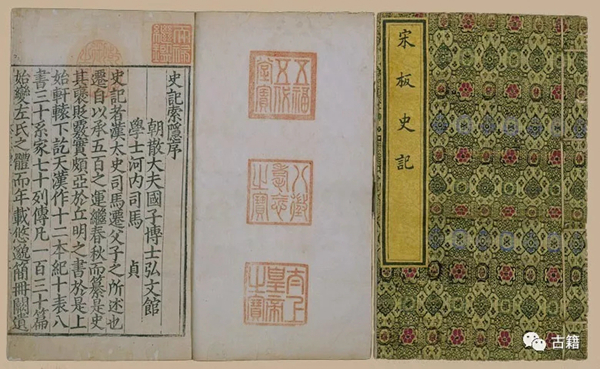 宋板史記
五福五代堂寶
八徵耄念之寶
太上皇帝之寶
天祿繼鑑
史記索隱序
朝散大夫國子博士弘文館
學士河内司馬 貞
史記者漢太史司馬遷父子之所述也
遷自以承五百之運繼春秋而纂是史
其襃貶覈實頗亞於丘明之書於是上
始軒轅下訖天漢作十二本紀十表八
書三十系家七十列傳凡一百三十篇
始變左氏之體而年載悠邈簡冊闕遺
古籍